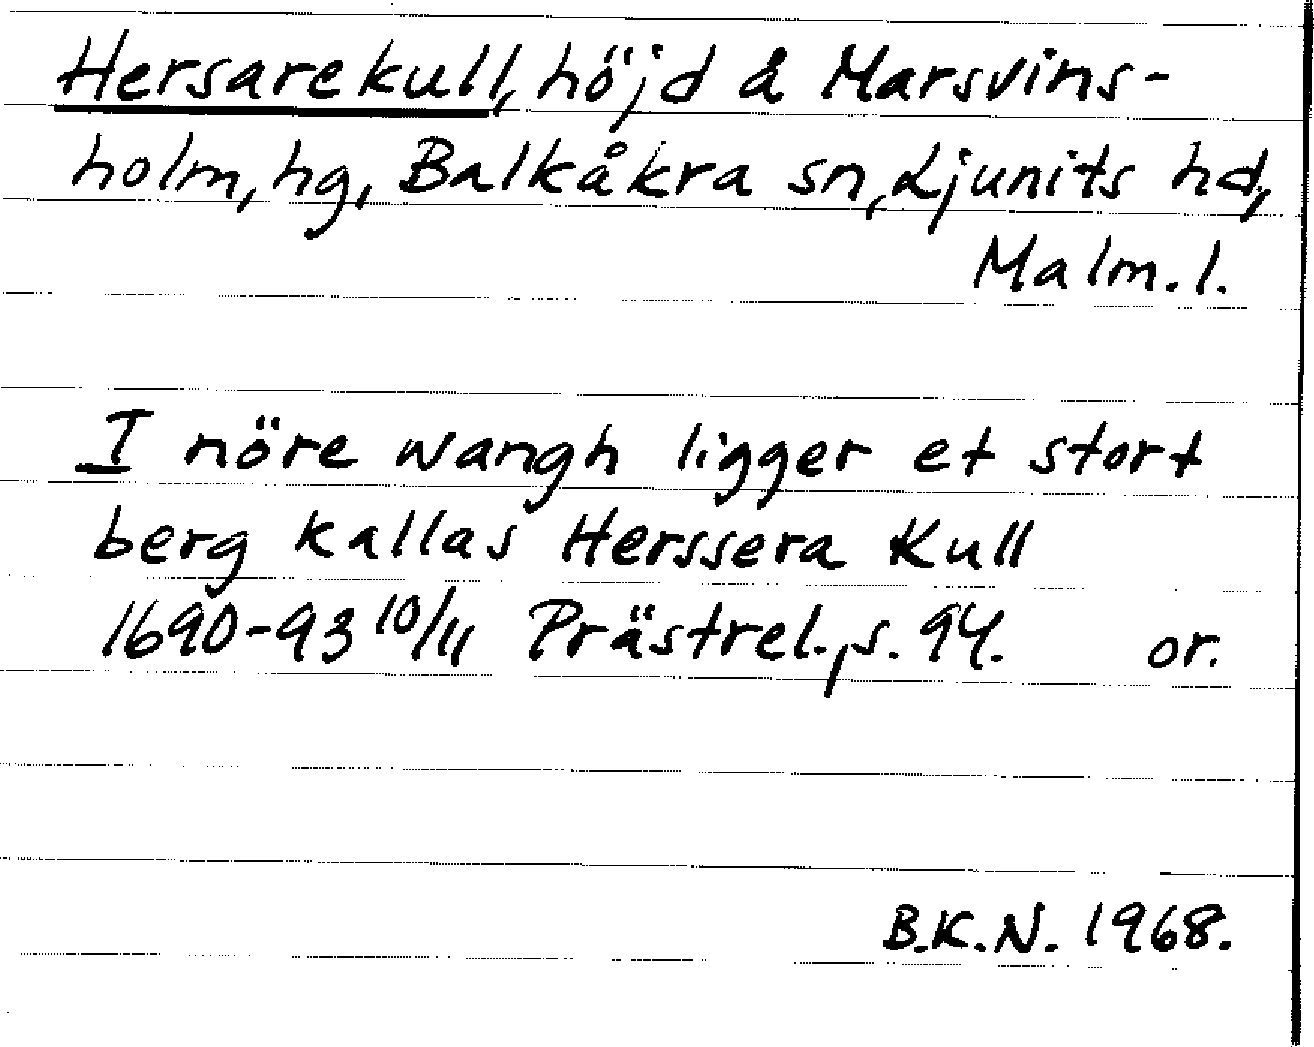 Hersarekull, höjd å Marsvins-
holm, hg, Balkåkra sn, Ljunits hd,
Malm. l.
I nöre wangh ligger et stort
berg kallas Herssera Kull
1690-93 10/11 Prästrel., s. 94. or.
B.K.N. 1968.